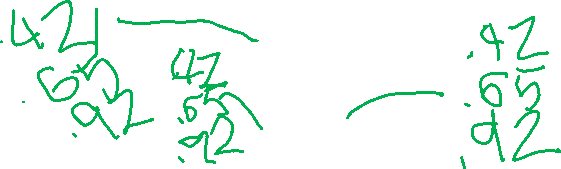 .42
.65
.92
.42
.65
.92
.42
.65
.92